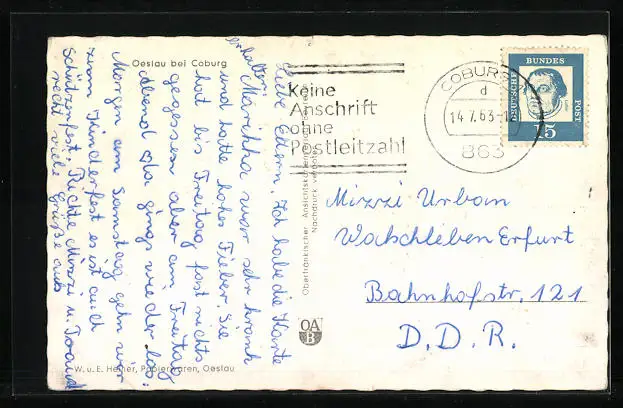 Oeslau bei Coburg
Liebe Eltern. Ich habe die Karte
erhalten.
Marichka war sehr krank
und hatte hohes Fieber Sie
hat bis Freitag fast nichts
gegessen aber am Freitag
abend da gings wieder los.
Morgen am Samstag gehn wir
zum Kinderfest es ist auch
Schützenfest. Richte Mirzi u.
recht viele Grüße aus
W. u. E. Heiner, Papierwaren, Oeslau
Oberfränkischer Ansichtskartenverlag
Nachdruck verboten
OA
B
Keine
Anschrift
ohne
Postleitzahl
COBURG
d
14.7.63-1
863
DEUTSCHE
BUNDES
POST
15
Mizzi Urban
Walschleben Erfurt
Bahnhofstr. 121
D. D. R.